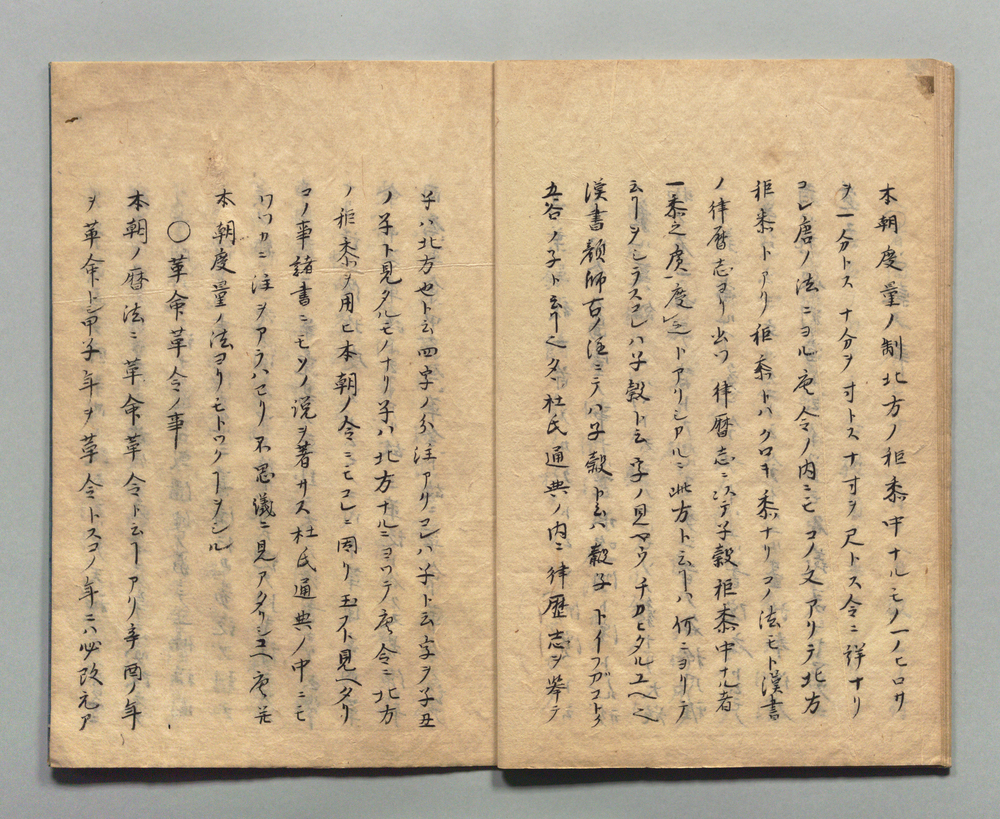 本朝度量ノ制北方ノ秬黍中ナルモノ一ノヒロサ
ヲ一分トス十分ヲ寸トス十寸ヲ尺トス令ニ詳ナリ
コレ唐ノ法ニヨル唐令ノ内ニモコノ文アリテ北方
秬黍トアリ秬黍トハクロキ黍ナリコノ法モト漢書
ノ律暦志ヨリ出ツ律暦志ニ以テ子穀秬黍中ナル者
一黍之廣度之トアリシアルニ此方ト云ヿハ何ニヨリテ
云ヿヲシラスコレハ子穀ト云字ノ見ヤウチカヒタルユヘ也
漢書顔師古ノ注ニテハ子穀ト云ハ穀子トイフガコトク
五谷ノ子ト云ヿ也タ杜氏通典ノ内ニ律歴志ヲ挙テ
子ハ北方也ト云四字ノ分注アリコレハ子ト云字ヲ子丑
ノ子ト見タルモノナリ子ハ北方ナルニヨツテ唐令ニ北方
ノ秬黍ヲ用ヒ本朝ノ令ニモコレニ因リ玉フト見ヘタリ
コノ事諸書ニモソノ説ヲ著サス杜氏通典ノ中ニモ
ワツカニ注ヲアラハセリ不思儀ニ見アタリシユヘ唐并
本朝度量ノ法ヨリモトツクヿヲシル
〇革命革令ノ事
本朝ノ暦法ニ革命革令ト云ヿアリ辛酉ノ年
ヲ革命ト甲子年ヲ革令トスコノ年ニハ必改元ア